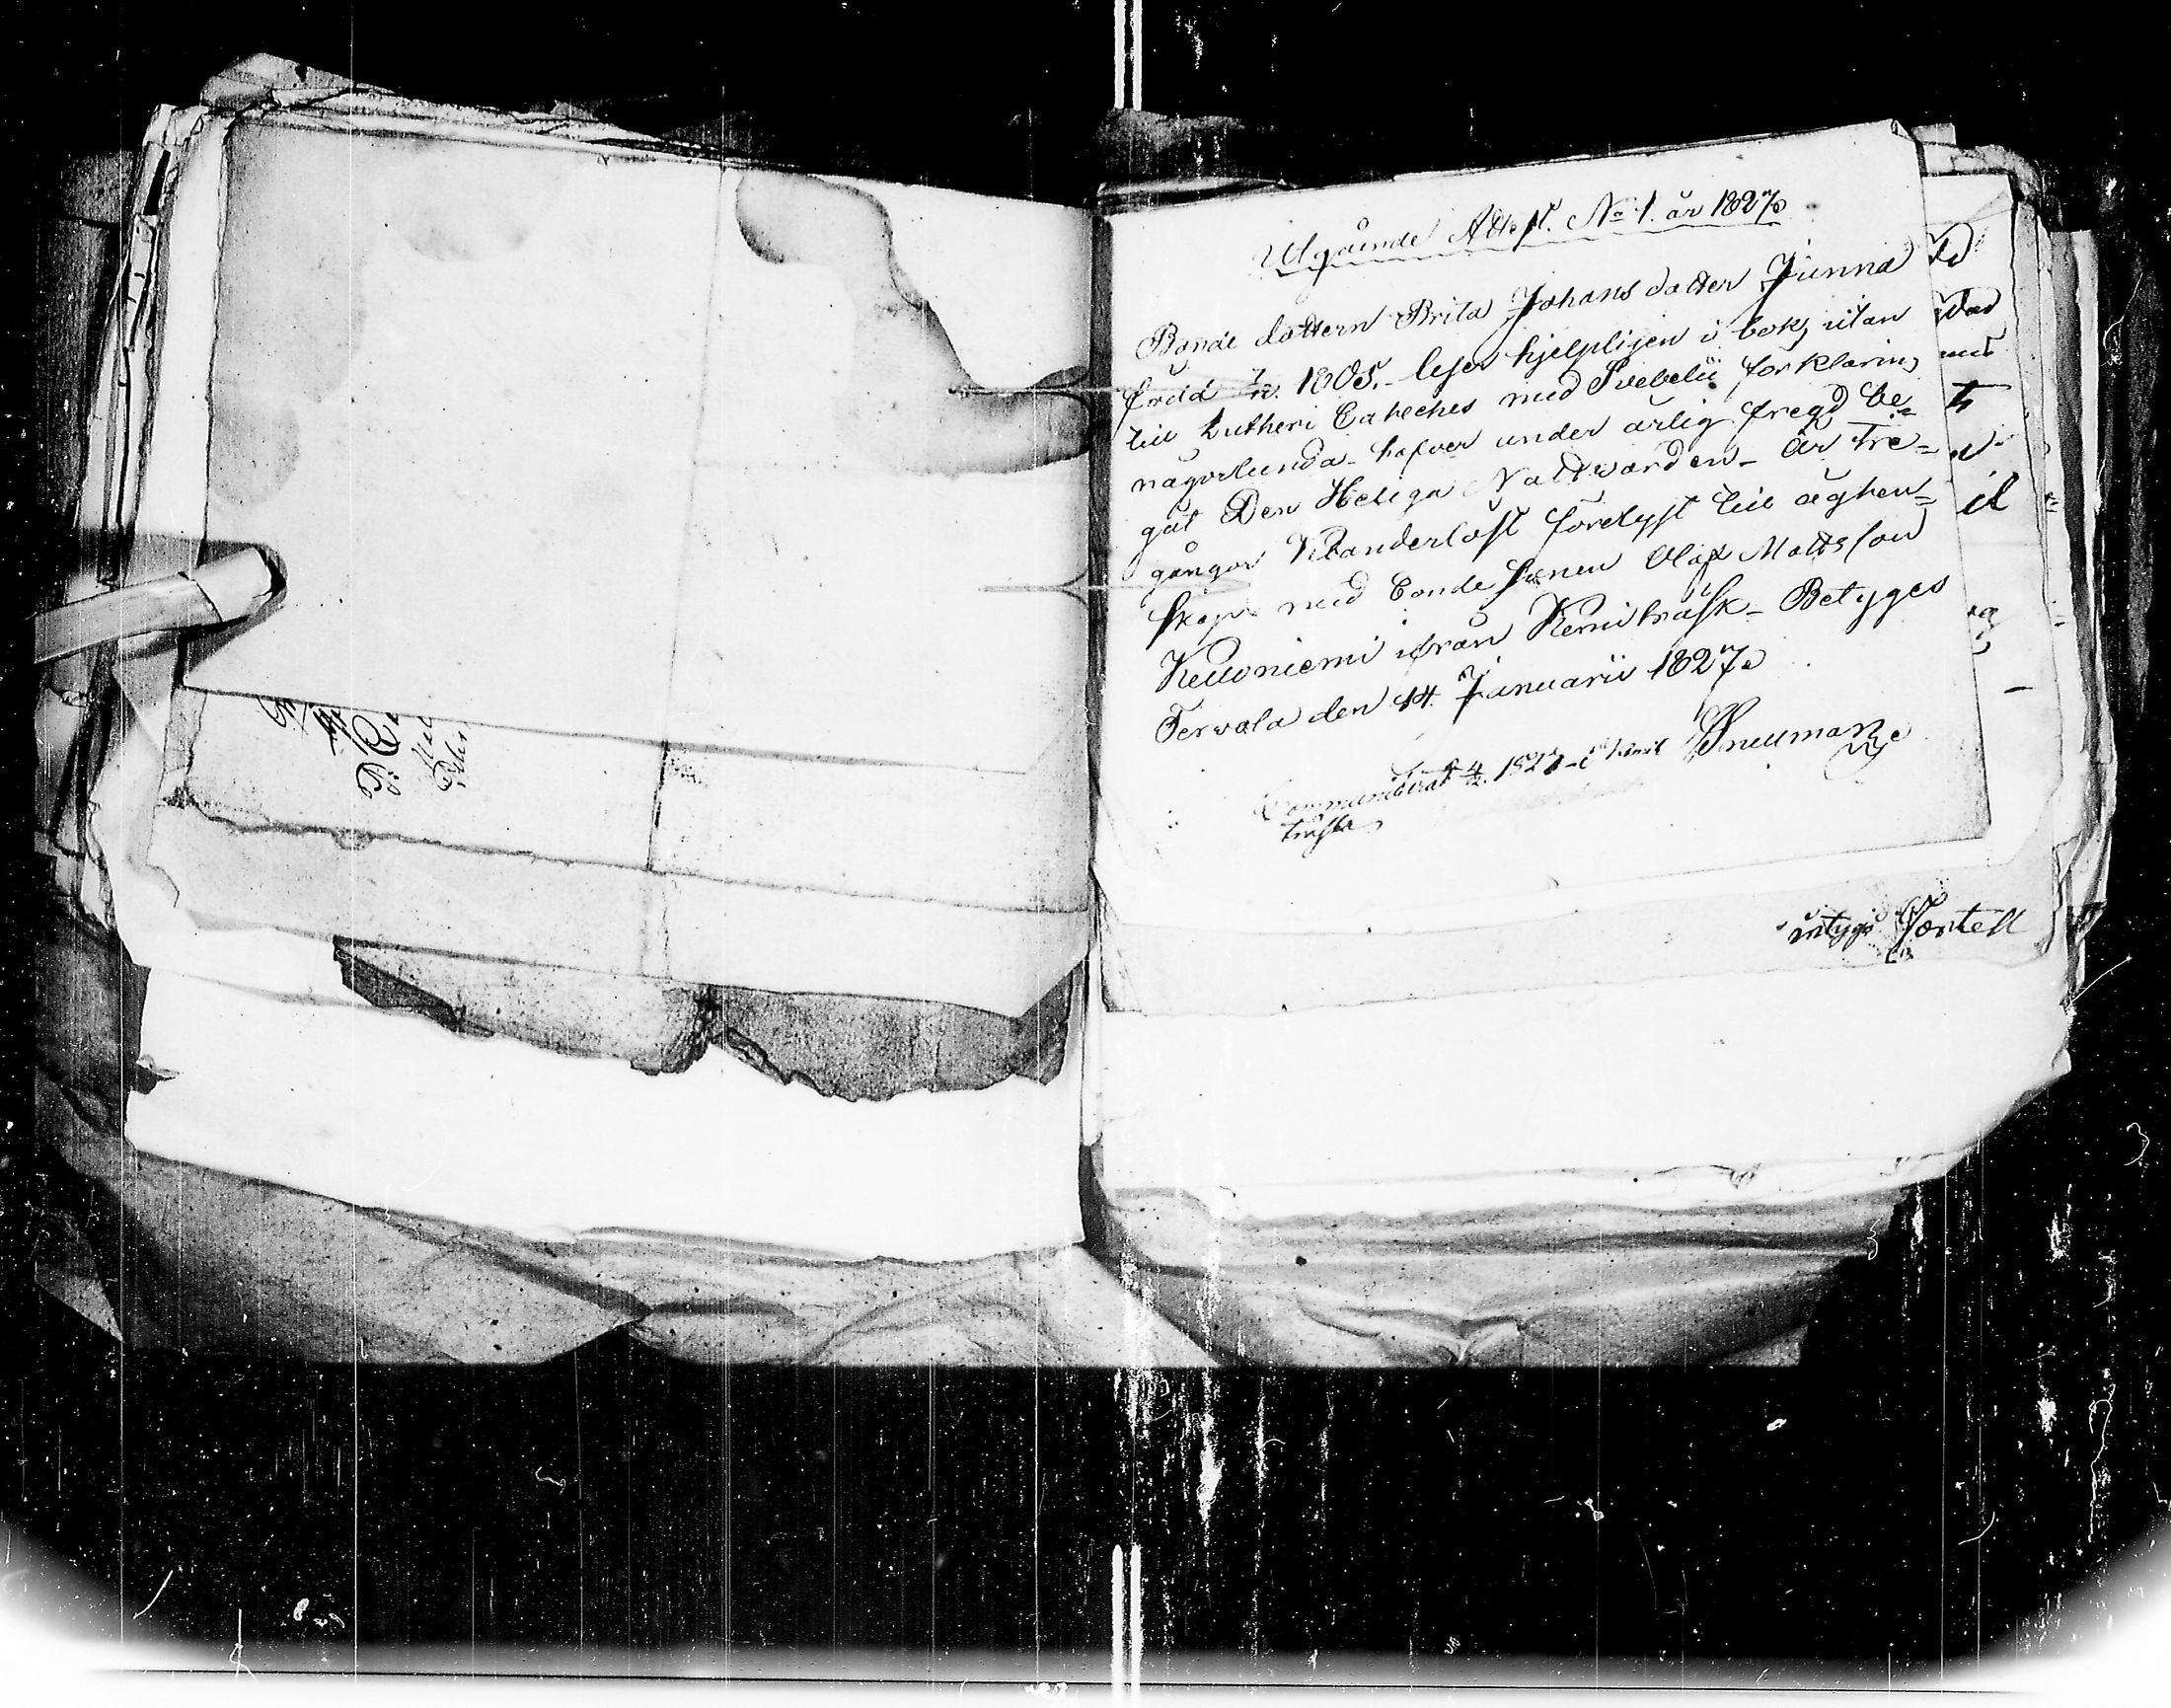 Utgående Attest. No 1. år 1827.
Bonde dottern Brita Johansdotter Junna
född 1805. läser hjelpligen i bok, utan
till Lutheri Cateches med Svebelii förklaring
någorlunda. hafver under ärlig fregd be-
gåt Den Heliga Nattvarden - är tre-
gångor Klanderlöst förelyst till ägten-
skap med bonde sonen Olof Mattsson
Kelloniemi ifrån Kemiträsk - Betyges
Tervola den 14. Januarii 1827.
Sneuman
Communicerat 1827 - i Kemi
träsk
intyga Fortell